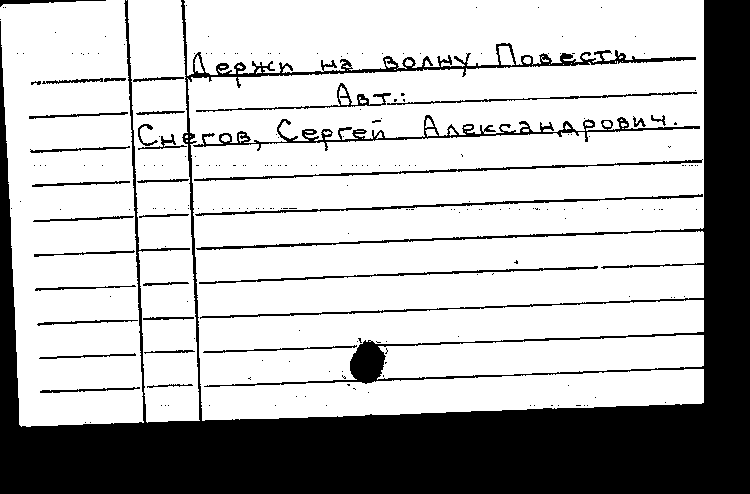 Держи на волну. Повесть.
Авт.:
Снегов, Сергей Александрович.